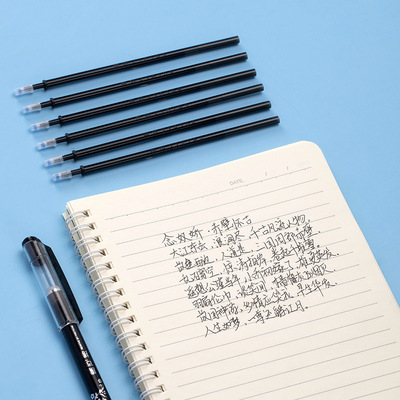 DATE.
念奴娇·赤壁怀古
大江东去,浪淘尽,千古风流人物。
故垒西边,人道是,三国周郎赤壁
乱石穿空,惊涛拍岸,卷起千堆雪。
遥想公瑾当年,小乔初嫁了,雄姿英发。
羽扇纶巾,谈笑间,樯橹灰飞烟灭
故国神游,多情应笑我,早生华发
人生如梦,一尊还酹江月。